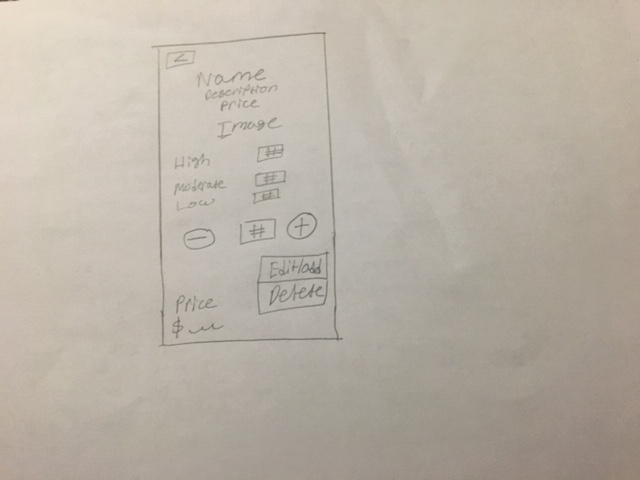 <
Name
Description
Price
Image
High #
Moderate #
Low #
- # +
Edit/add
Delete
Price
$